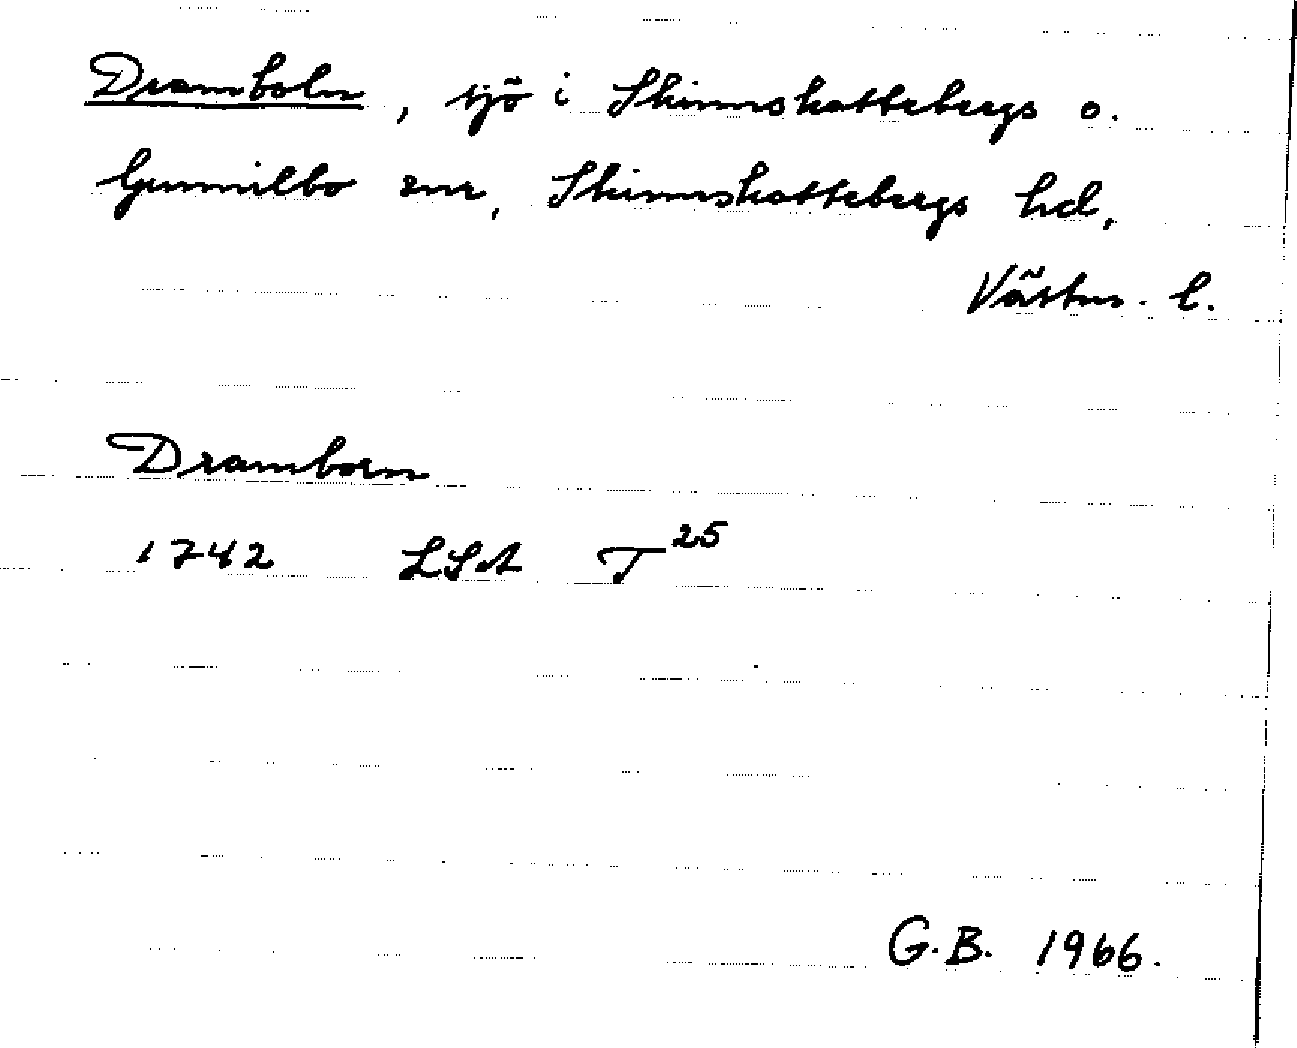 Dramboln, sjö i Skinnskattebergs o.
Gunnilbo snr, Skinnskattebergs hd,
Västm. l.
Dramborn
1742 LSA T 25
G.B. 1966.